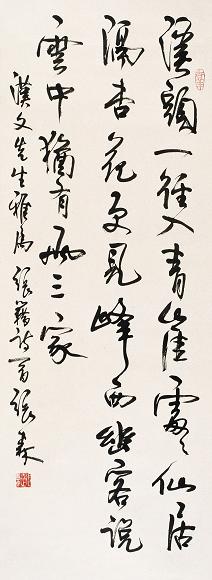 溪頭一徑入青崖處〻仙居
隔杏花更見峰西幽客説
雲中猶有兩三家
漢文先生雅属 張籍詩一首 張森